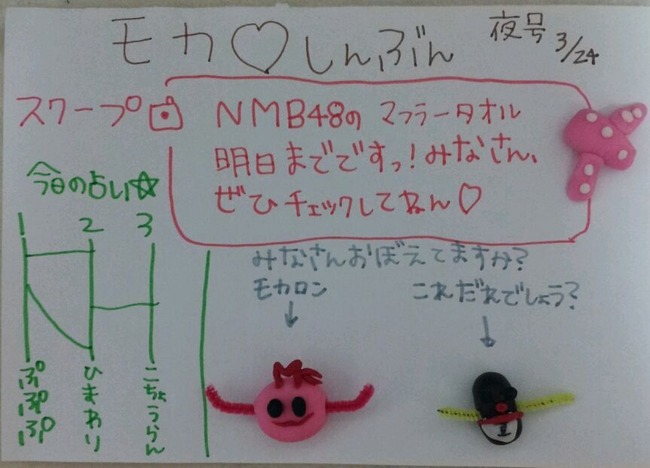 モカ♡しんぶん 夜号 3/24
スクープ NMB48の マフラータオル
明日までですっ!みなさん、
ぜひ チェックしてねん♡
今日の占い☆
1 2 3
ぷぷぷ
ひまわり
こちょうらん
みなさんおぼえてますか?
モカロン
↓
これだれでしょう?
↓